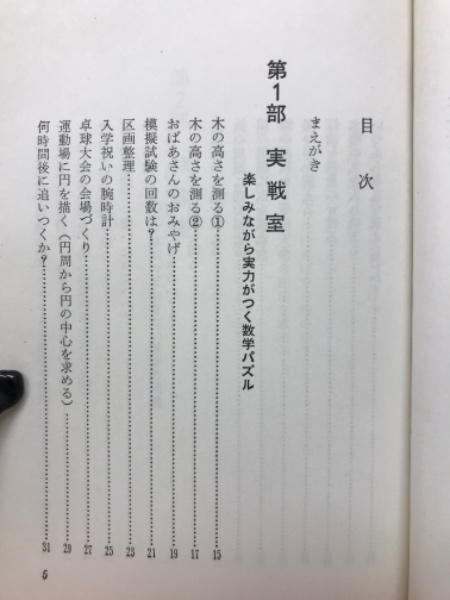 目次
まえがき
第1部 実戦室
楽しみながら実力がつく数学パズル
木の高さを測る①……15
木の高さを測る②……17
おばあさんのおみやげ……19
模擬試験の回数は?……21
区画整理……23
入学祝いの腕時計……25
卓球大会の会場づくり……27
運動場に円を描く(円周から円の中心を求める)……29
何時間後に追いつくか?……31
5